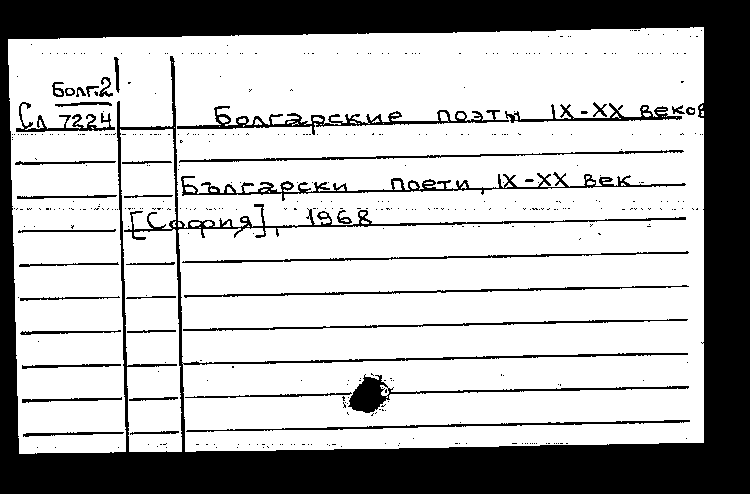 Болг.2
Сл 7224
Болгарские поэты IX-XX веков
Български поети, IX-XX век
[София], 1968